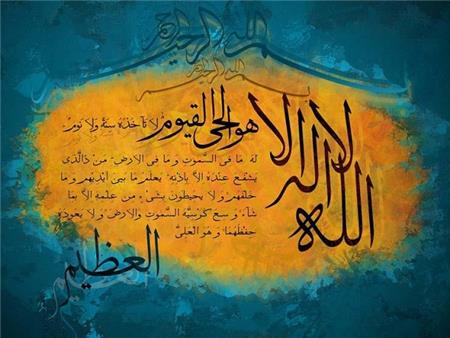 بسم الله الرحمن الرحيم
بسم الله الرحمن الرحيم
الله لا اله الا هو الحي القيوم لا تأخذه سنة ولا نوم
له ما فى السموت و ما فى الارض من ذالذى
يشفع عنده الا باذنه يعلم ما بين ايديهم و ما
خلفهم و لا يحيطون بشىء من علمه الا بما
شاء و سع كرسيه السموت والارض و لا يعوده
حفظهما و هو العلى
العظيم